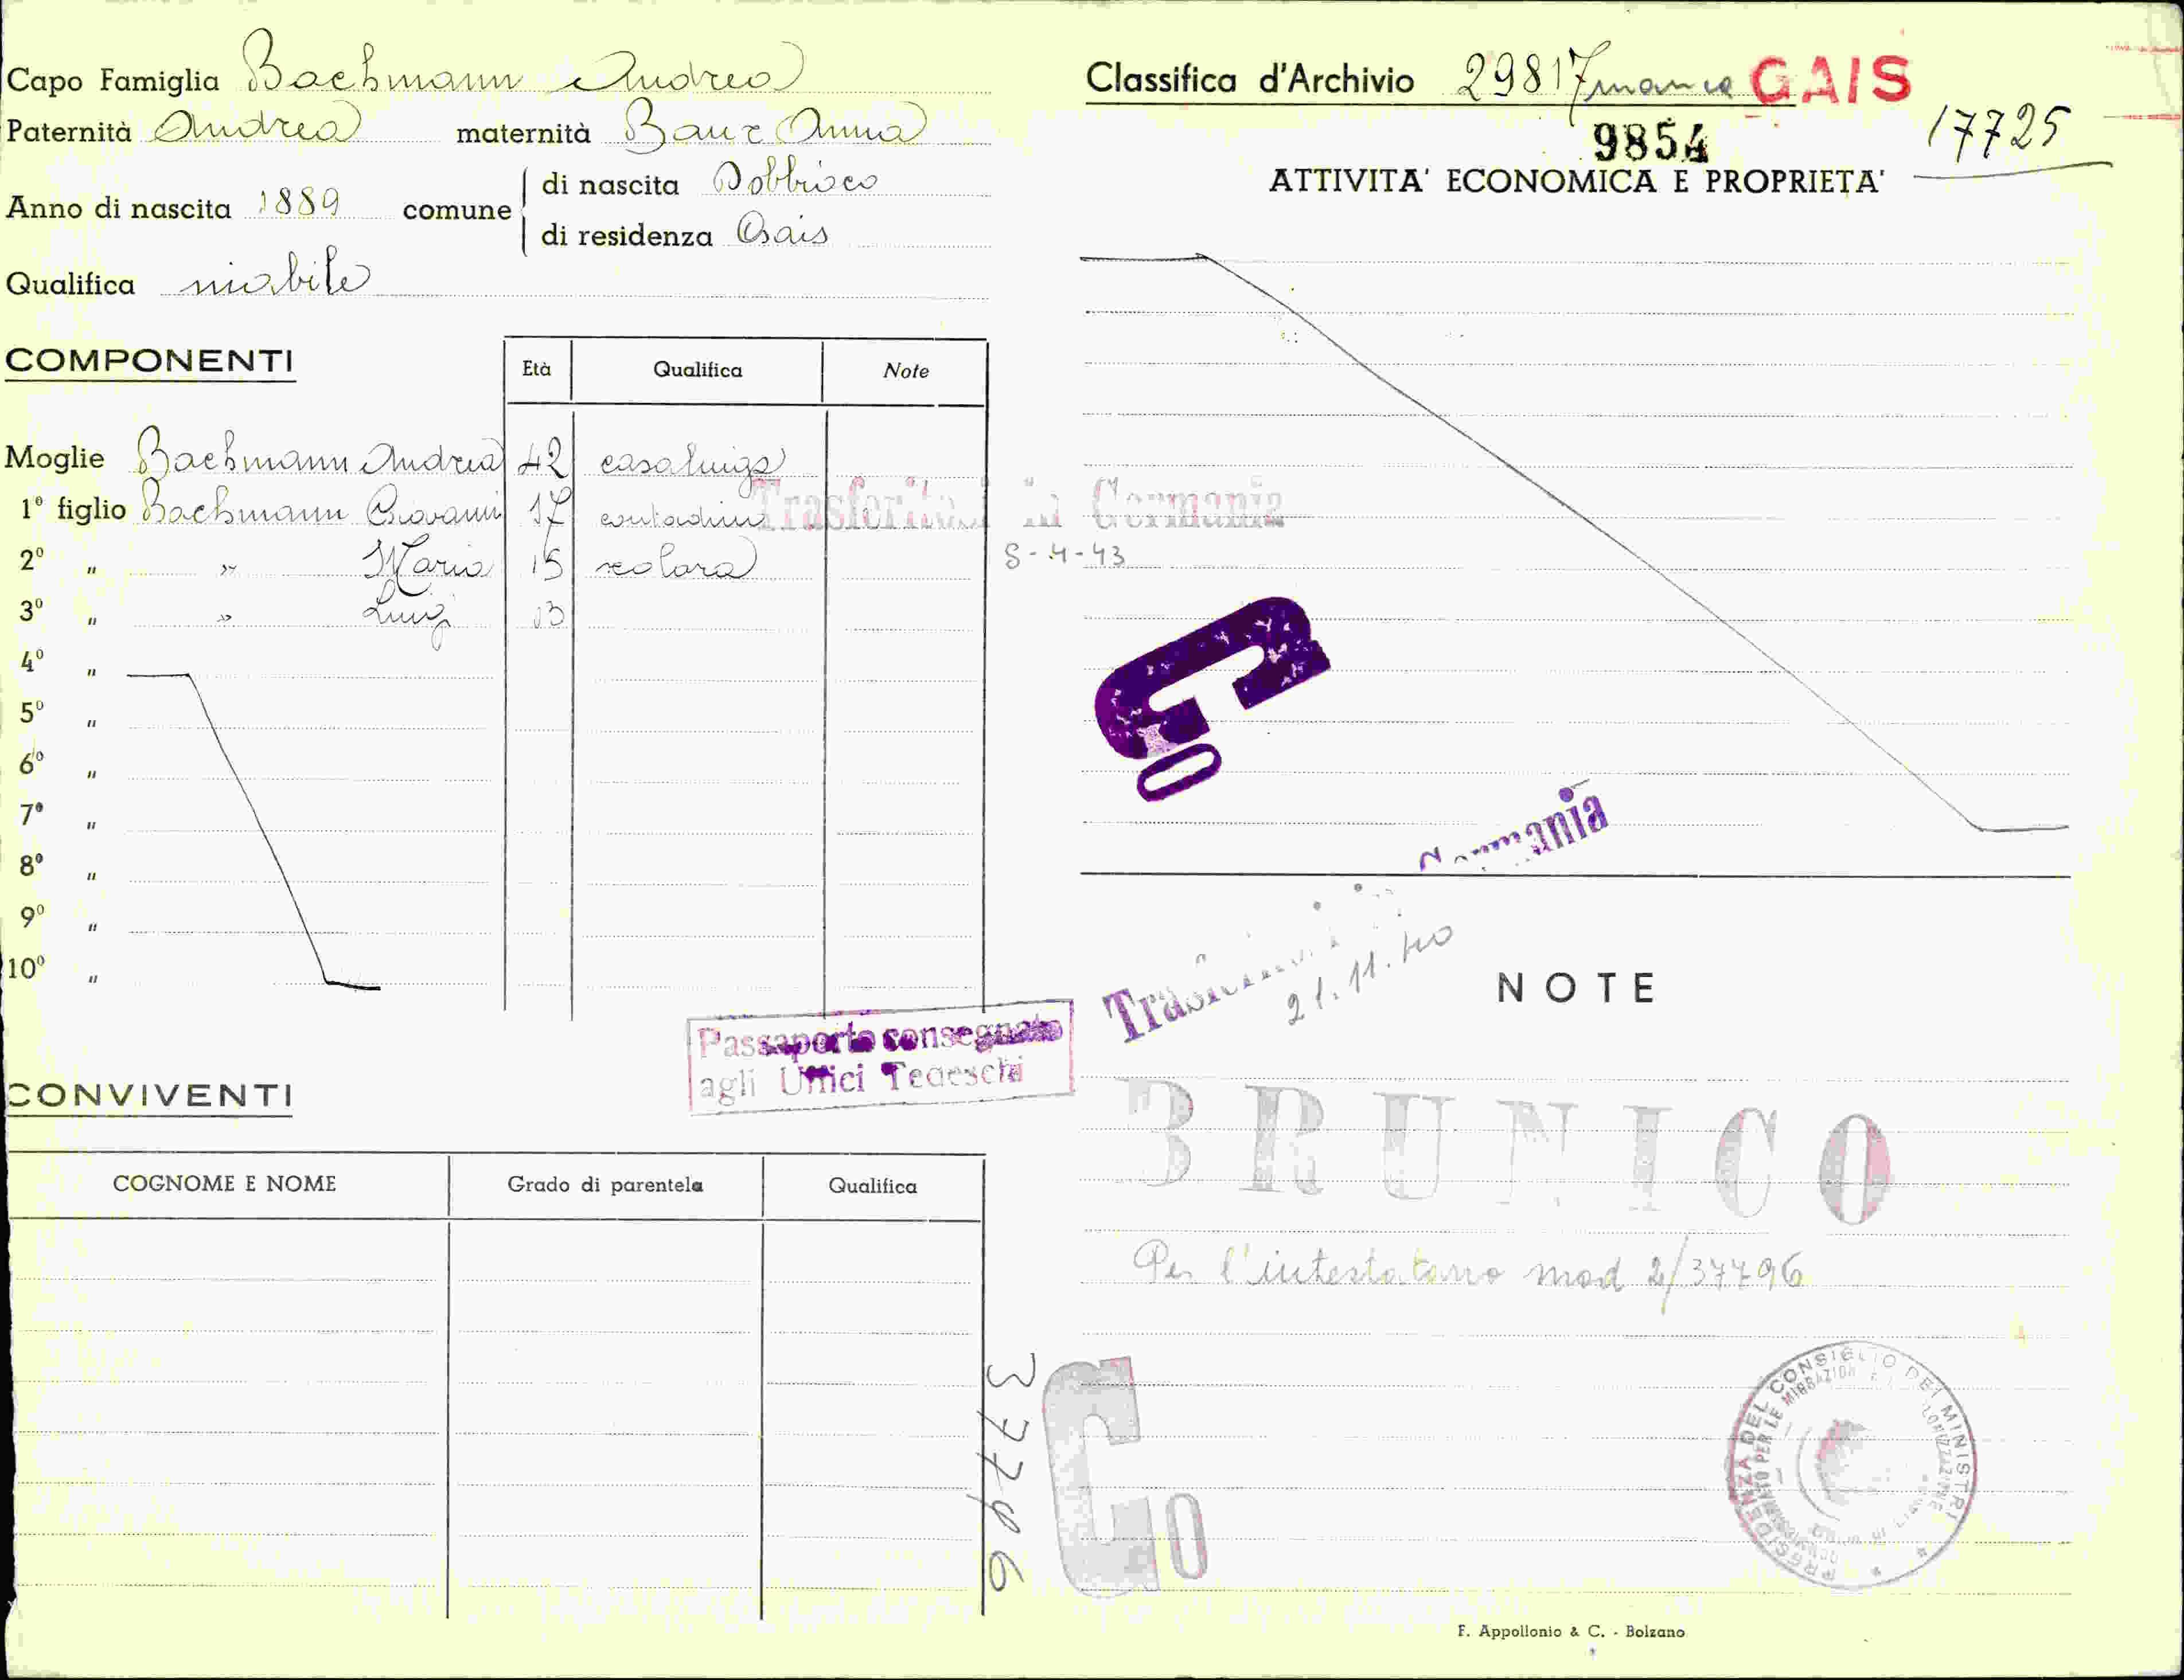 Capo Famiglia Bachmann Andrea
Paternità Andrea maternità Baur Anna
Anno di nascita 1889 comune di nascita Dobbiaco
di residenza Gais
Qualifica
COMPONENTI Età Qualifica Note
Moglie Bachmann Andrea 42 casalinga
1º figlio Bachmann Giovanni 17 contadino
2º " » Maria 15 scolara
3º " » Luigi 13
4º "
5º "
6º "
7º "
8º "
9º "
10º "
Passaporto consegnato
agli Uffici Tedeschi
CONVIVENTI
COGNOME E NOME Grado di parentela Qualifica
37796
Classifica d'Archivio 29817 manca GAIS
9854 17725
ATTIVITA' ECONOMICA E PROPRIETA'
Trasferitosi in Germania
8-4-43
Go
Trasferitosi in Germania
21.11.40
NOTE
BRUNICO
Per l'intestatario mod 2/37796
Go
PRESIDENZA DEL CONSIGLIO DEI MINISTRI
COMMISSARIATO PER LE MIGRAZIONI E LA COLONIZZAZIONE
F. Appollonio & C. - Bolzano